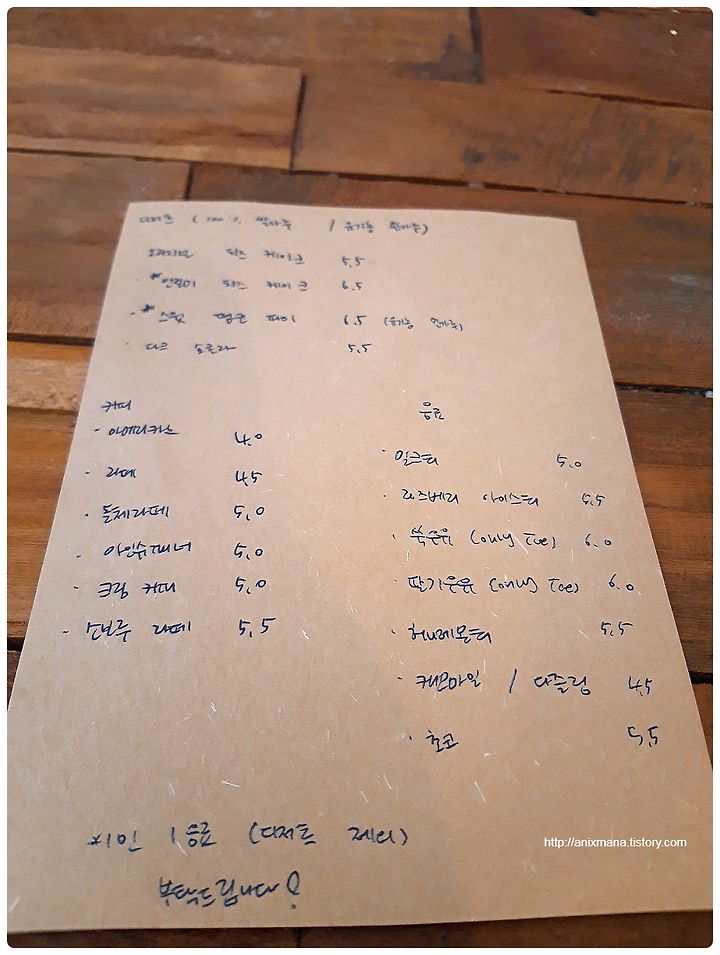 디저트 (100% 쌀가루 / 유기농 쌀가루)
· 오리지널 치즈 케이크 5.5
· *인절미 치즈 케이크 6.5
· *스윗 펌킨 파이 6.5 (유기농 쌀가루)
· 다크 쇼콜라 5.5
커피
· 아메리카노 4.0
· 라떼 4.5
· 돌체라떼 5.0
· 아인슈페너 5.0
· 크림 커피 5.0
· 소보루 라떼 5.5
음료
· 밀크티 5.0
· 라즈베리 아이스티 5.5
· 쑥우유 (only Ice) 6.0
· 딸기우유 (only Ice) 6.0
· 허니레몬티 5.5
· 캐모마일 / 다즐링 4.5
· 초코 5.5
*1인 1음료 (디저트 제외)
부탁드립니다
http://anixmana.tistory.com